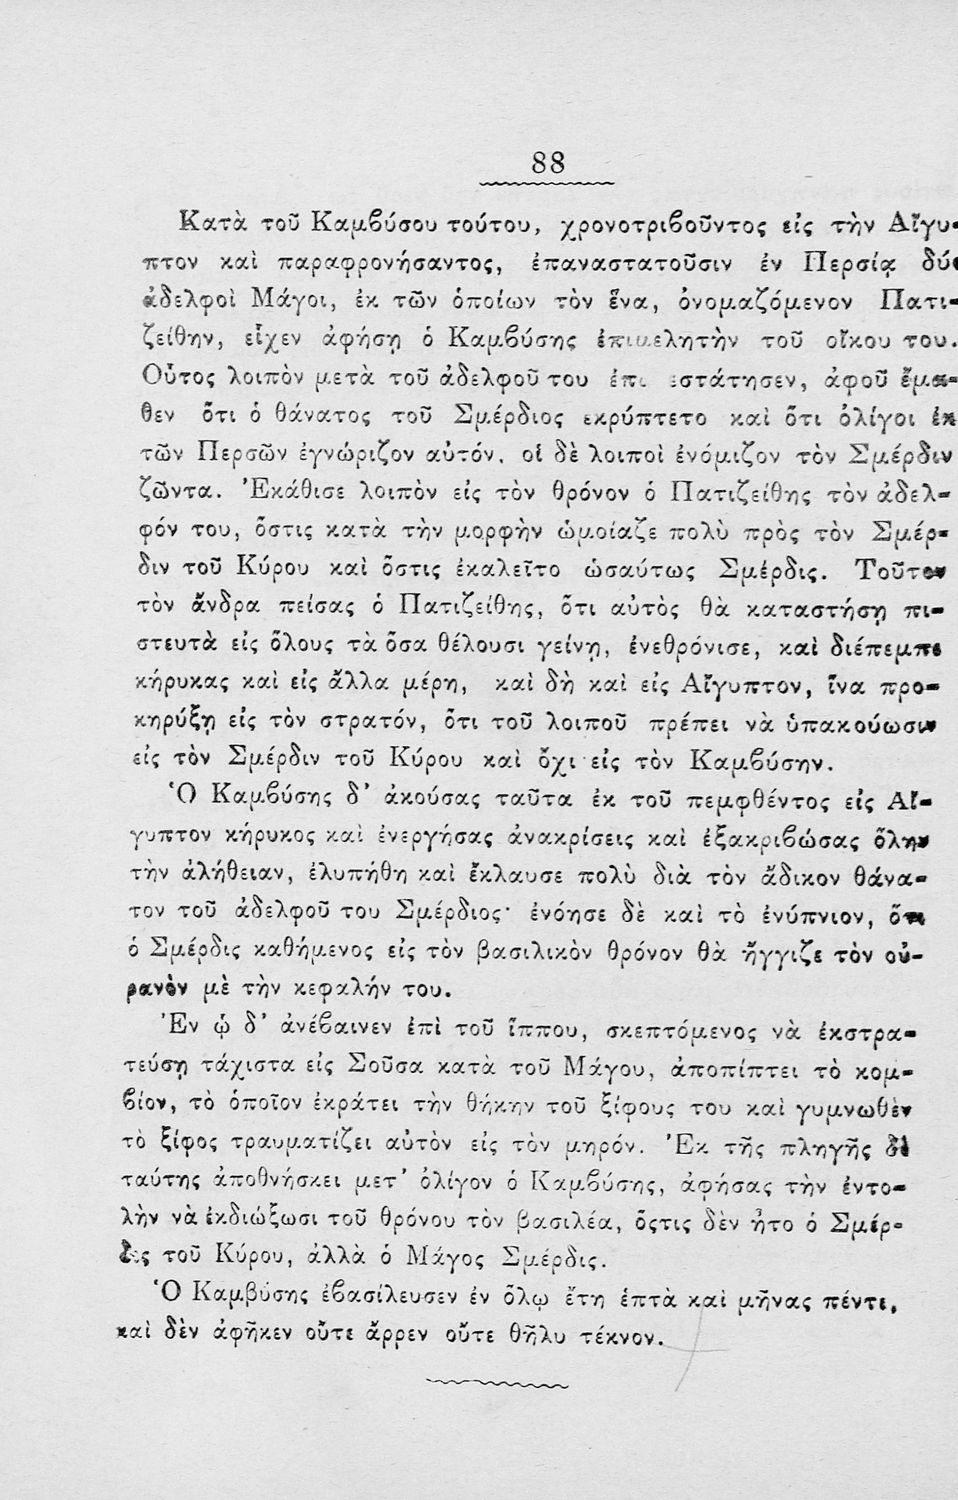 88
Κατὰ τοῦ Καμβύσου τούτου, χρονοτριβοῦντος εἰς τὴν Αἴγυ-
πτον καὶ παραφρονήσαντος, ἐπαναστατοῦσιν ἐν Περσίᾳ δύο
ἀδελφοὶ Μάγοι, ἐκ τῶν ὁποίων τὸν ἕνα, ὀνομαζόμενον Πατι-
ζείθην, εἶχεν ἀφήσῃ ὁ Καμβύσης ἐπιμελητὴν τοῦ οἴκου του.
Οὗτος λοιπὸν μετὰ τοῦ ἀδελφοῦ του ἀφοῦ ἔμα-
θεν ὅτι ὁ θάνατος τοῦ Σμέρδιος ἐκρύπτετο καὶ ὅτι ὀλίγοι ἐκ
τῶν Περσῶν ἐγνώριζον αὐτόν, οἱ δὲ λοιποὶ ἐνόμιζον τὸν Σμέρδιν
ζῶντα. Ἐκάθισε λοιπὸν εἰς τὸν θρόνον ὁ Πατιζείθης τὸν ἀδελ-
φόν του, ὅστις κατὰ τὴν μορφὴν ὡμοίαζε πολὺ πρὸς τὸν Σμέρ-
διν τοῦ Κύρου καὶ ὅστις ἐκαλεῖτο ὡσαύτως Σμέρδις. Τοῦτον
τὸν ἄνδρα πείσας ὁ Πατιζείθης, ὅτι αὐτὸς θὰ καταστήσῃ πι-
στευτὰ εἰς ὅλους τὰ ὅσα θέλουσι γείνῃ, ἐνεθρόνισε, καὶ διέπεμπε
κήρυκας καὶ εἰς ἄλλα μέρη, καὶ δὴ καὶ εἰς Αἴγυπτον, ἵνα προ-
κηρύξῃ εἰς τὸν στρατόν, ὅτι τοῦ λοιποῦ πρέπει νὰ ὑπακούωσιν
εἰς τὸν Σμέρδιν τοῦ Κύρου καὶ ὄχι εἰς τὸν Καμβύσην.
Ὁ Καμβύσης δ' ἀκούσας ταῦτα ἐκ τοῦ πεμφθέντος εἰς Αἴ-
γυπτον κήρυκος καὶ ἐνεργήσας ἀνακρίσεις καὶ ἐξακριβώσας ὅλην
τὴν ἀλήθειαν, ἐλυπήθη καὶ ἔκλαυσε πολὺ διὰ τὸν ἄδικον θάνα-
τον τοῦ ἀδελφοῦ του Σμέρδιος· ἐνόησε δὲ καὶ τὸ ἐνύπνιον, ὅτι
ὁ Σμέρδις καθήμενος εἰς τὸν βασιλικὸν θρόνον θὰ ἤγγιζε τὸν οὐ-
ρανὸν μὲ τὴν κεφαλήν του.
Ἐν ᾧ δ' ἀνέβαινεν ἐπὶ τοῦ ἵππου, σκεπτόμενος νὰ ἐκστρα-
τεύσῃ τάχιστα εἰς Σοῦσα κατὰ τοῦ Μάγου, ἀποπίπτει τὸ κομ-
βίον, τὸ ὁποῖον ἐκράτει τὴν θήκην τοῦ ξίφους του καὶ γυμνωθὲν
τὸ ξίφος τραυματίζει αὐτὸν εἰς τὸν μηρόν. Ἐκ τῆς πληγῆς δὲ
ταύτης ἀποθνήσκει μετ' ὀλίγον ὁ Καμβύσης, ἀφήσας τὴν ἐντο-
λὴν νὰ ἐκδιώξωσι τοῦ θρόνου τὸν βασιλέα, ὅςτις δὲν ἦτο ὁ Σμέρ-
δις τοῦ Κύρου, ἀλλὰ ὁ Μάγος Σμέρδις.
Ὁ Καμβύσης ἐβασίλευσεν ἐν ὅλῳ ἔτη ἑπτὰ καὶ μῆνας πέντε,
καὶ δὲν ἀφῆκεν οὔτε ἄρρεν οὔτε θῆλυ τέκνον.